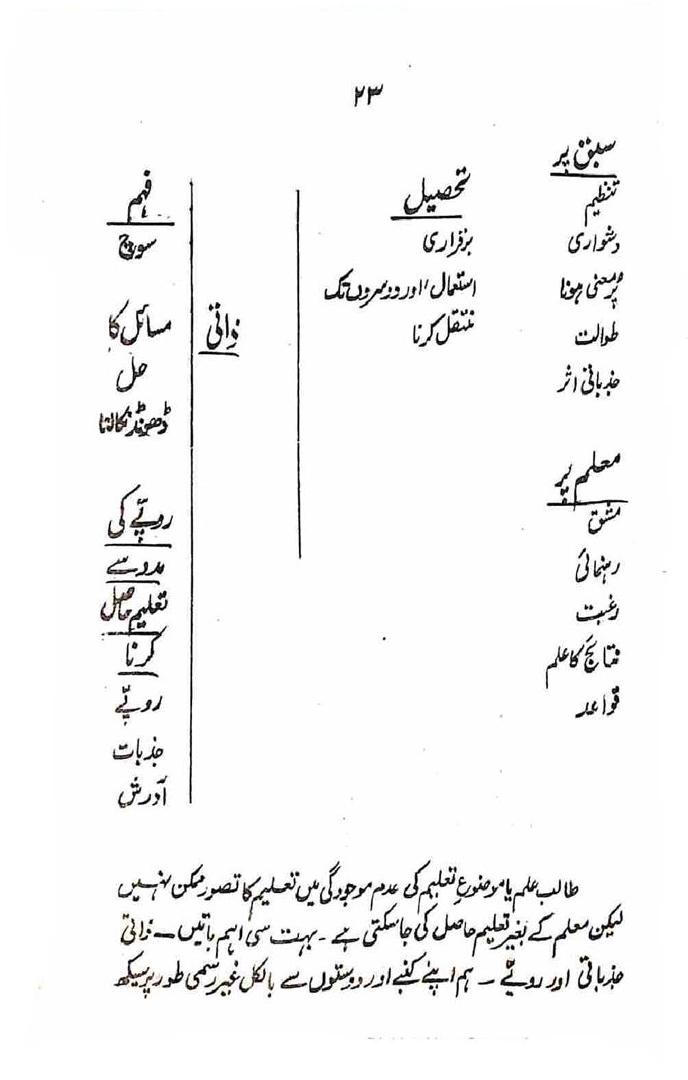 ۲۳
سبق پر
تنظیم
دشواری
پُر معنی ہونا
طوالت
جذباتی اثر
معلم پر
مشق
رہنمائی
رغبت
نتائج کا علم
قواعد
تحصیل
برقراری
استعمال، اور دوسروں تک
منتقل کرنا
ذاتی
فہم
سوچ
مسائل کا
حل
ڈھونڈ نکالنا
رویّے کی
مدد سے
تعلیم حاصل
کرنا
رویّے
جذبات
آدرش
طالب علم یا موضوعِ تعلیم کی عدم موجودگی میں تعلیم کا تصور ممکن نہیں
لیکن معلم کے بغیر تعلیم حاصل کی جا سکتی ہے ۔ بہت سی اہم باتیں — ذاتی
جذباتی اور رویّے — ہم اپنے کنبے اور دوستوں سے بالکل غیر رسمی طور پر سیکھ